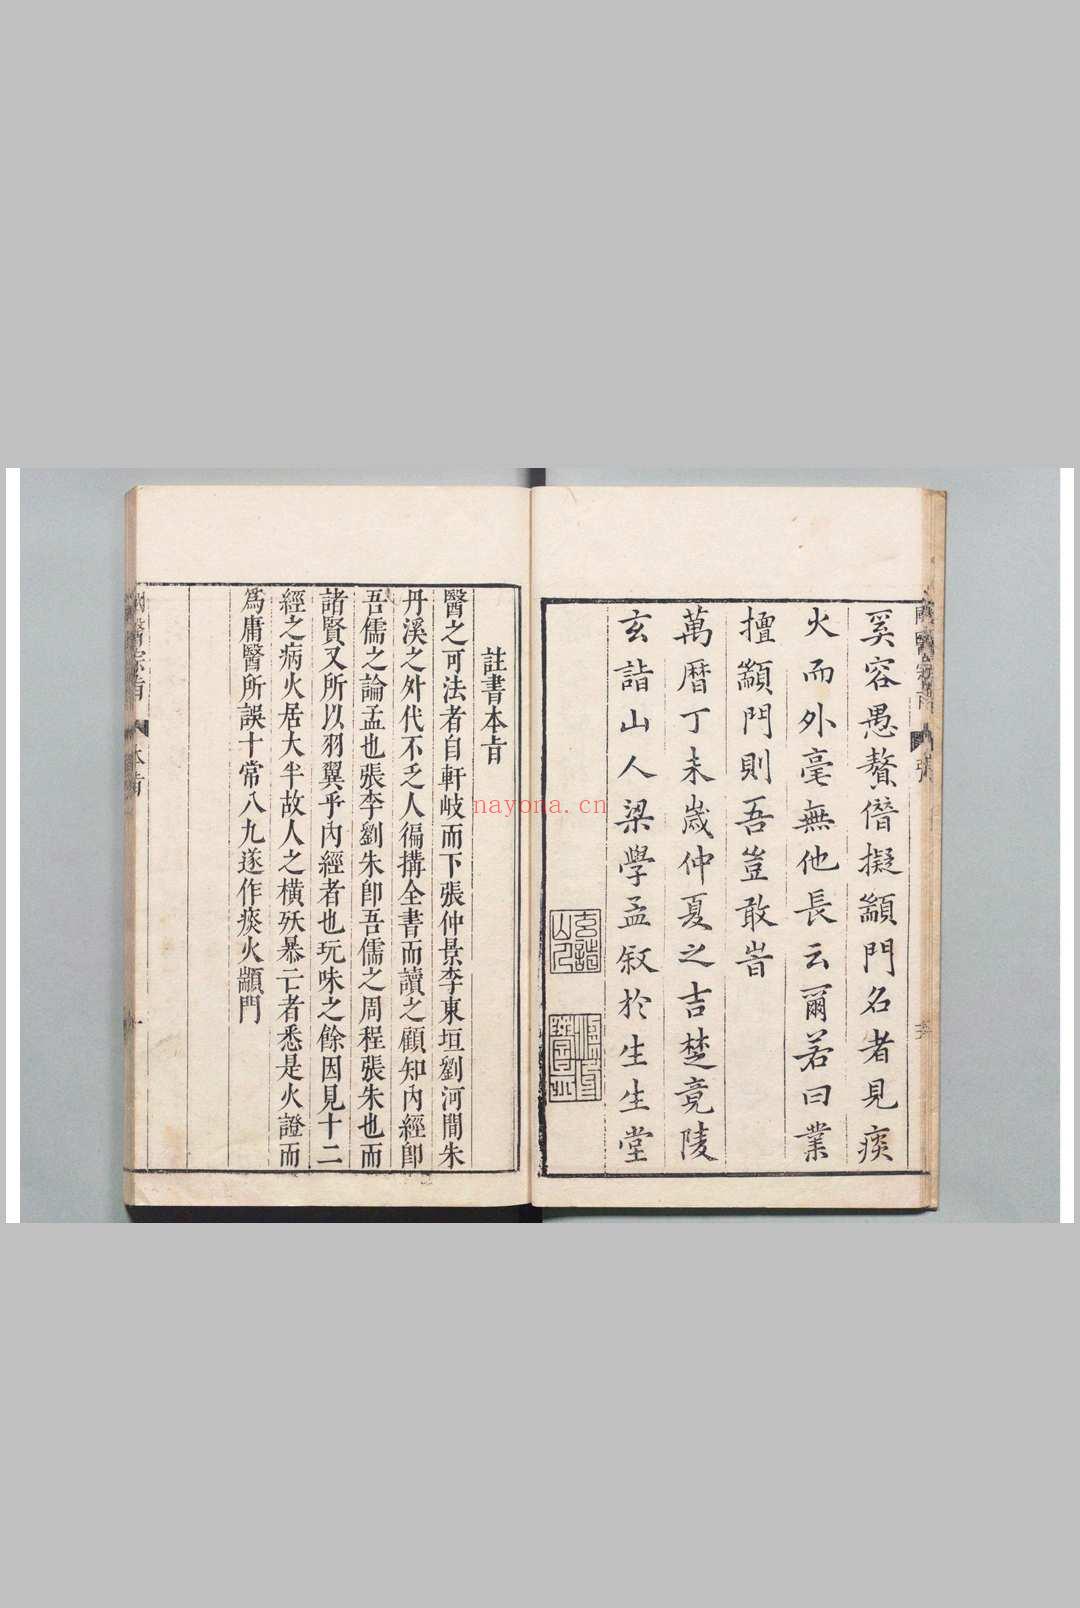 奚容愚贅僭擬顓門名者見痰
火而外毫無他長云爾若曰業
擅顓門則吾豈敢旹
萬曆丁未嵗仲夏之吉楚竟陵
玄詣山人梁學孟叙於生生堂
註書本旨
醫之可法者自軒岐而下張仲景李東垣劉河間朱
丹溪之外代不乏人徧搆全書而讀之顧知內經卽
吾儒之論孟也張李劉朱卽吾儒之周程張朱也而
諸賢又所以羽翼乎內經者也玩味之餘因見十二
經之病火居大半故人之橫殀暴亡者悉是火證而
爲庸醫所誤十常八九遂作痰火顓門
醫宗旨
本旨
一
nayona.cn